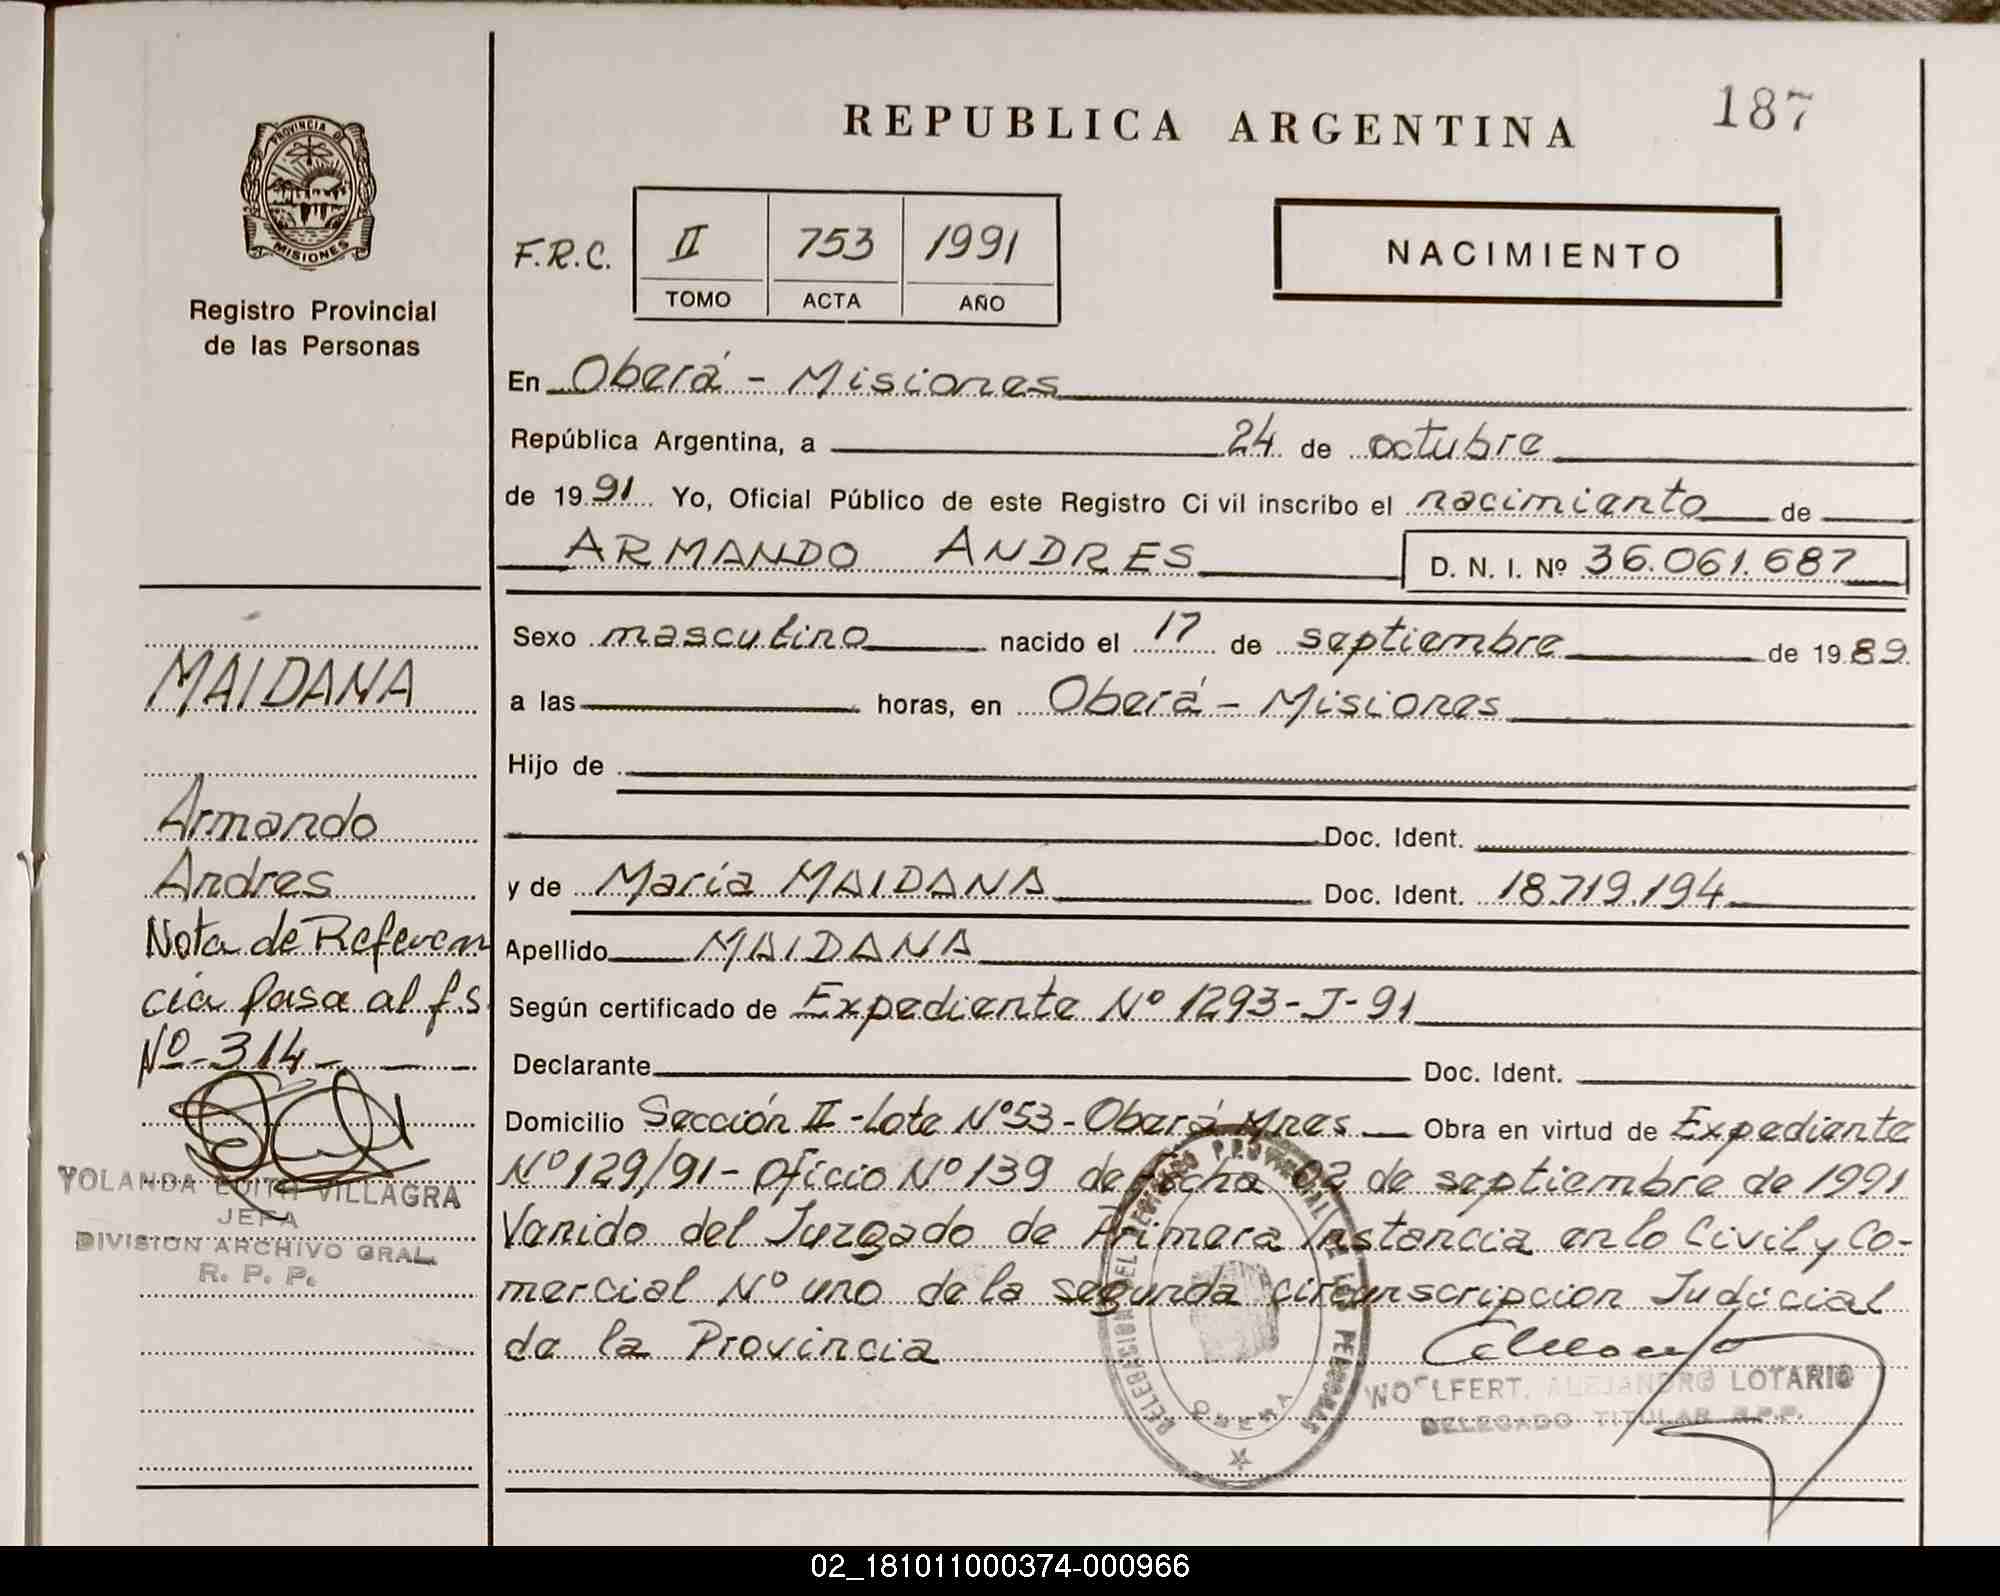 187
REPUBLICA ARGENTINA
PROVINCIA DE
MISIONES
Registro Provincial
de las Personas
F.R.C. II 753 1991
TOMO ACTA AÑO
NACIMIENTO
En Oberá - Misiones
República Argentina, a 24 de octubre
de 1991 Yo, Oficial Público de este Registro Ci vil inscribo el nacimiento de
ARMANDO ANDRES D. N. I. Nº 36.061.687
Sexo masculino nacido el 17 de septiembre de 1989
a las horas, en Oberá - Misiones
Hijo de
Doc. Ident.
y de María MAIDANA Doc. Ident. 18.719.194
Apellido MAIDANA
Según certificado de Expediente Nº 1293-J-91
Declarante Doc. Ident.
Domicilio Sección II - Lote Nº 53 - Oberá Mnes Obra en virtud de Expediente
Nº 129/91 - Oficio Nº 139 de fecha 02 de septiembre de 1991
Venido del Juzgado de Primera Instancia en lo Civil y Co-
mercial Nº uno de la segunda circunscripcion Judicial
de la Provincia
WOELFERT, ALEJANDRO LOTARIO
DELEGADO TITULAR R.P.P.
OBERA
MAIDANA
Armando
Andres
Nota de Referen
cia pasa al fs.
Nº 314
YOLANDA EDITH VILLAGRA
JEFA
DIVISION ARCHIVO GRAL.
R. P. P.
02_181011000374-000966